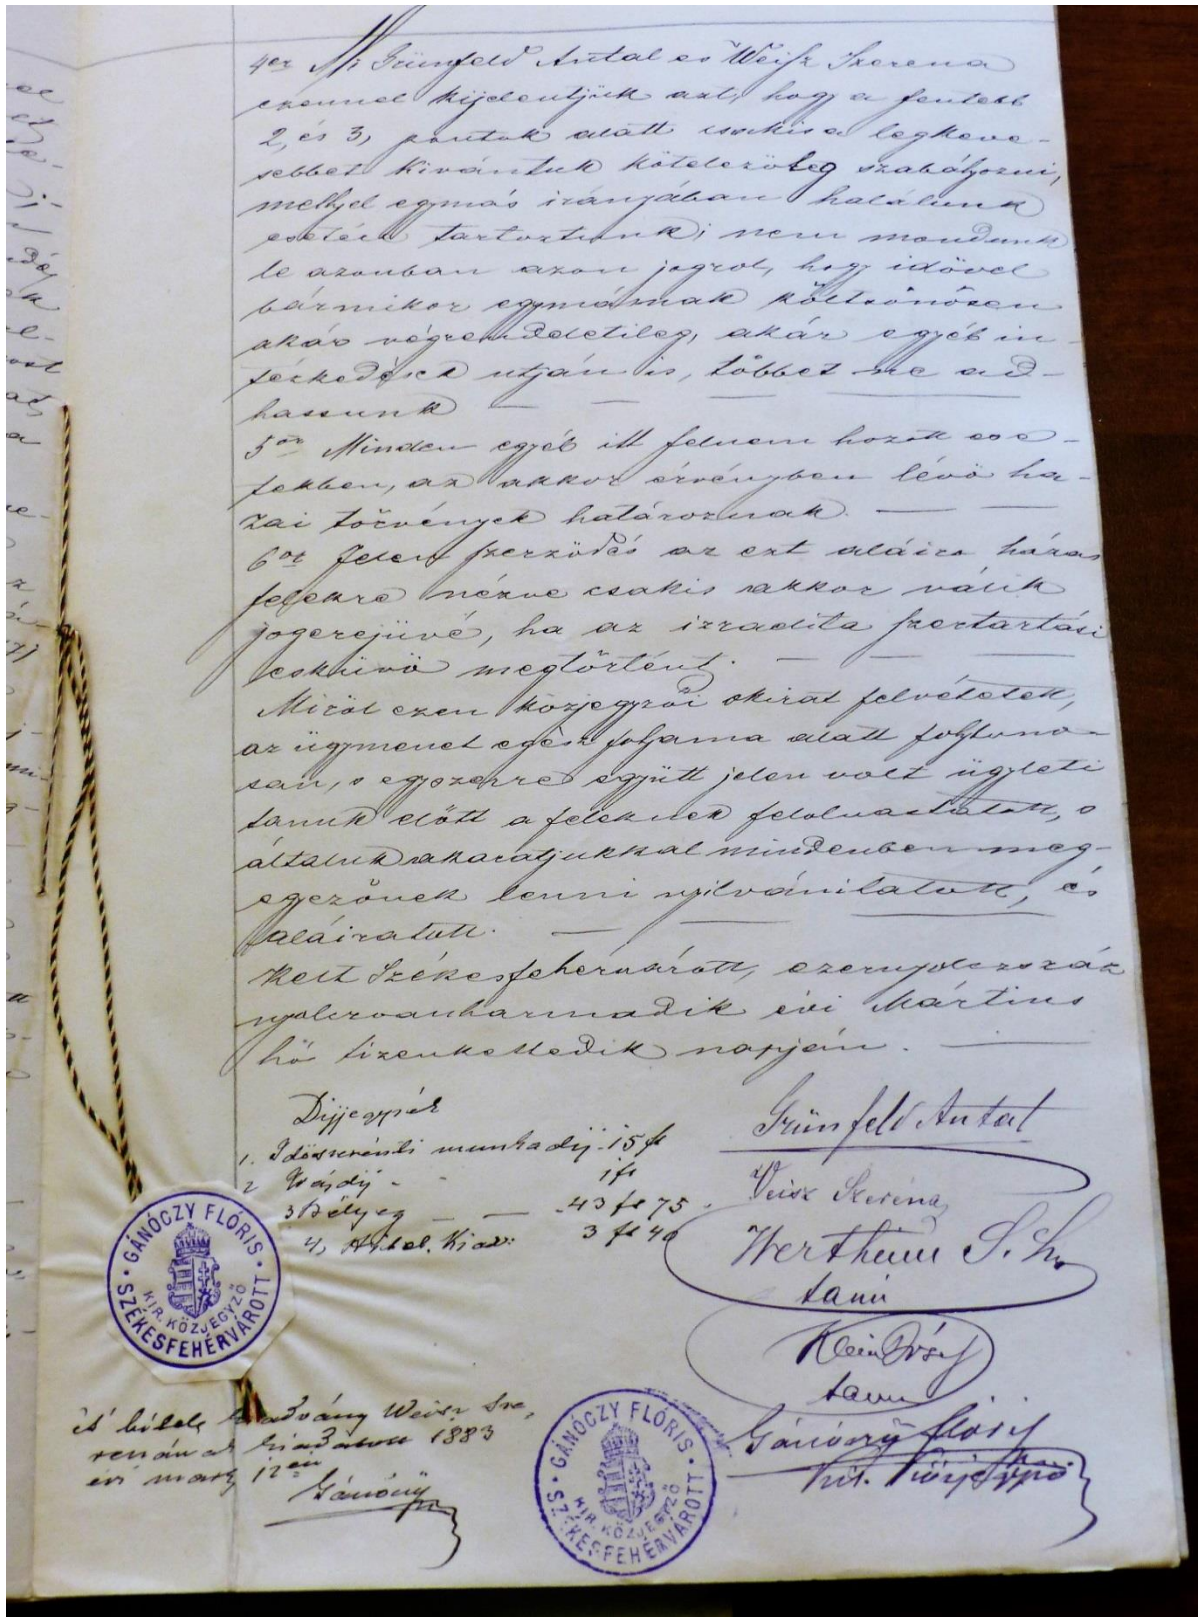 4er Mi Grünfeld Antal és Weisz Szerena
ezennel kijelentjük azt, hogy a fentebb
2, és 3, pontok alatt csakis a legkeve-
sebbet kivántuk kötelezöleg szabályozni,
mellyel egymás irányában halálunk
esetére tartoztunk; nem mondunk
le azonban azon jogrol, hogy idővel
bármikor egymásnak kölcsönösen
akár végrendeletileg, akár egyéb in-
tézkedések utján is, többet ne ad-
hassunk
5ör Minden egyéb itt fel nem hozott ese-
tekben, az akkor érvényben lévö ha-
zai törvények határoznak.
6or Jelen szerzödés az ezt aláiro házas
felekre nézve csakis akkor válik
jogerejüvé, ha az izraelita szertartási
esküvö megtörtént.
Miröl ezen közjegyzöi okirat felvétetett,
az ügymenet egész folyama alatt folytono-
san, s egyszerre együtt jelen volt ügyleti
tanuk elött a feleknek felolvastatott, s
általuk akaratjukkal mindenben meg-
egyezönek lenni nyilvánitatott, és
aláiratott.
Kelt Székesfehérvárott, ezernyolczszáz
nyolczvanharmadik évi Mártius
hó tizenkettedik napján.
Dijjegyzék
1. Idöszerénti munkadij 15 ft
2 Irásdij - - 1 ft
3 Bélyeg 43 ft 75
4, Hitel. Kiad: 3 ft 40
Grünfeld Antal
Veisz Szeréna
Wertheim S.
tanu
Klein József
tanu
Gánóczy Flóris
kir. közjegyzö
GÁNÓCZY FLÓRIS
KIR. KÖZJEGYZŐ
SZÉKESFEHÉRVÁROTT
E' hitels kiadvány Weisz Sze-
renának kiadatott 1883
évi marz 12en
Gánóczy
GÁNÓCZY FLÓRIS
KIR. KÖZJEGYZŐ
SZÉKESFEHÉRVÁROTT